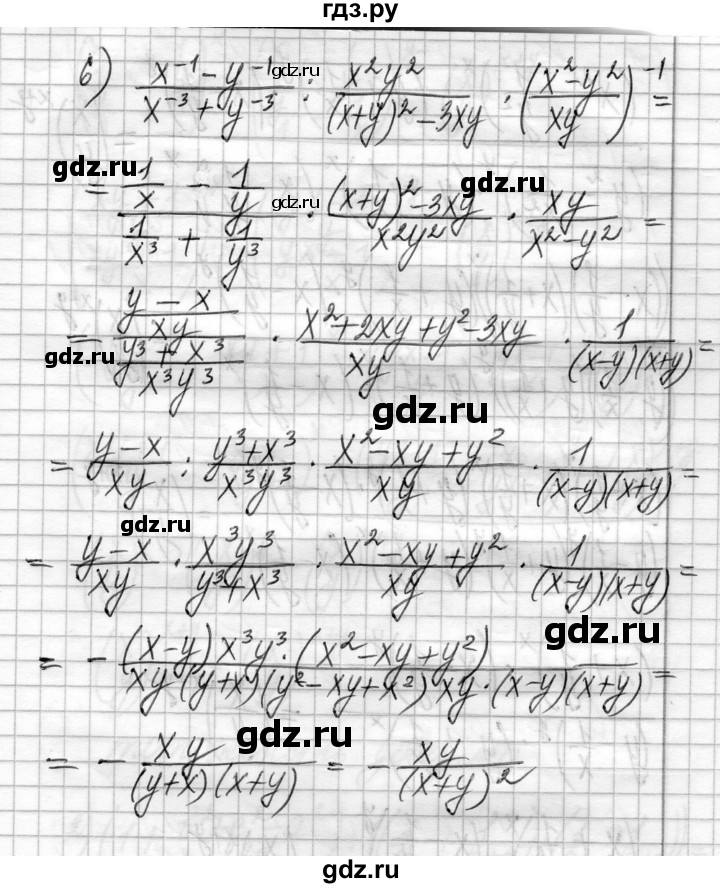 гдз.ру
6) \frac{x^{-1} - y^{-1}}{x^{-3} + y^{-3}} : \frac{x^2y^2}{(x+y)^2 - 3xy} \cdot \left(\frac{x^2 - y^2}{xy}\right)^{-1} =
gdz.ru
= \frac{\frac{1}{x} - \frac{1}{y}}{\frac{1}{x^3} + \frac{1}{y^3}} \cdot \frac{(x+y)^2 - 3xy}{x^2y^2} \cdot \frac{xy}{x^2 - y^2} =
gdz.ru gdz.ru gdz.ru
= \frac{\frac{y - x}{xy}}{\frac{y^3 + x^3}{x^3y^3}} \cdot \frac{x^2 + 2xy + y^2 - 3xy}{xy} \cdot \frac{1}{(x-y)(x+y)} =
gdz.ru
gdz.ru
= \frac{y-x}{xy} : \frac{y^3+x^3}{x^3y^3} \cdot \frac{x^2 - xy + y^2}{xy} \cdot \frac{1}{(x-y)(x+y)} =
gdz.ru
= \frac{y-x}{xy} \cdot \frac{x^3y^3}{y^3+x^3} \cdot \frac{x^2 - xy + y^2}{xy} \cdot \frac{1}{(x-y)(x+y)} =
gdz.ru
= - \frac{(x-y)x^3y^3 \cdot (x^2 - xy + y^2)}{xy(y+x)(y^2 - xy + x^2)xy \cdot (x-y)(x+y)} =
gdz.ru
= - \frac{xy}{(y+x)(x+y)} = - \frac{xy}{(x+y)^2}
gdz.ru